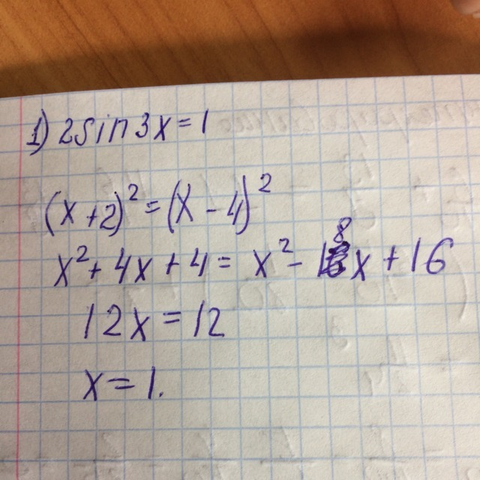 1) 2sin3x=1
(x+2)²=(x-4)²
x²+4x+4= x²-8x+16
12x=12
x=1.